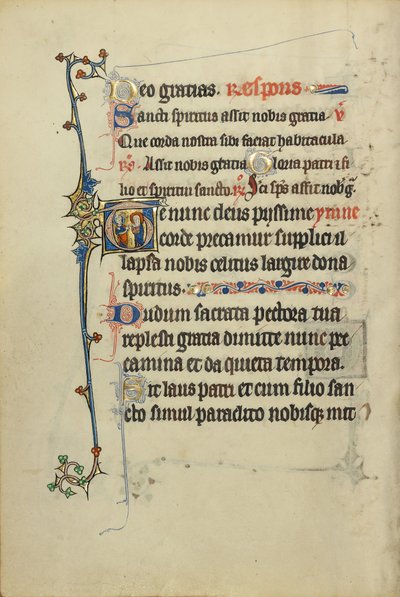 Deo gratias. Respons
Sancti spiritus assit nobis gratia V
Que corda nostra sibi faciat habitacula
R Assit nobis gratia Gloria patri et fi
lio et spiritui sancto. R Sci sps assit nob g.
Te nunc deus pyssime ymne
corde precamur supplici il
lapsa nobis celitus largire dona
spiritus.
Dudum sacrata pectora tua
replesti gratia dimitte nunc pec
camina et da quieta tempora.
Sit laus patri et cum filio san
cto simul paraclito nobisq; mit